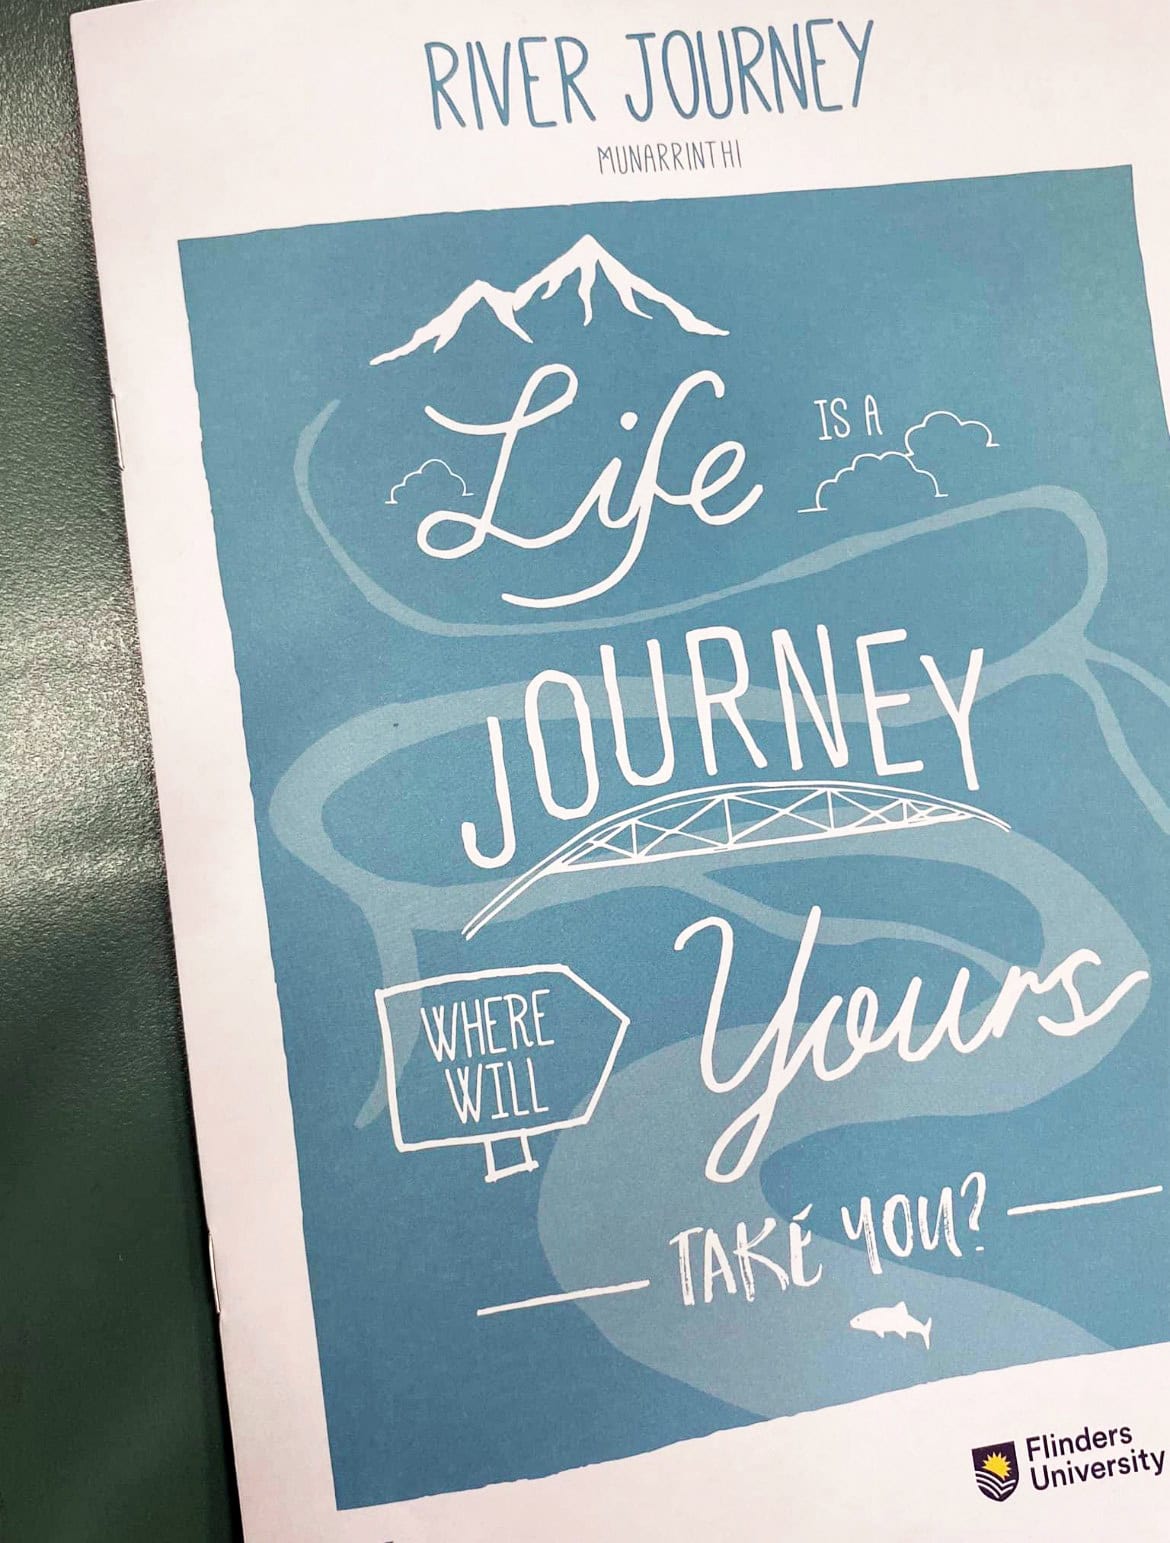 RIVER JOURNEY
MUNARRINTHI
Life
IS A
JOURNEY
WHERE
WILL
Yours
TAKE YOU?
Flinders
University